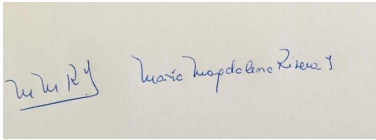 MMRY Maria Magdalena Rivera Y